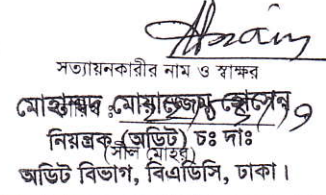 সত্যায়নকারীর নাম ও স্বাক্ষর
মোহাম্মদ মোয়াজ্জেম হোসেন
নিয়ন্ত্রক (অডিট) চঃ দাঃ
(সীল মোহর)
অডিট বিভাগ, বিএডিসি, ঢাকা।